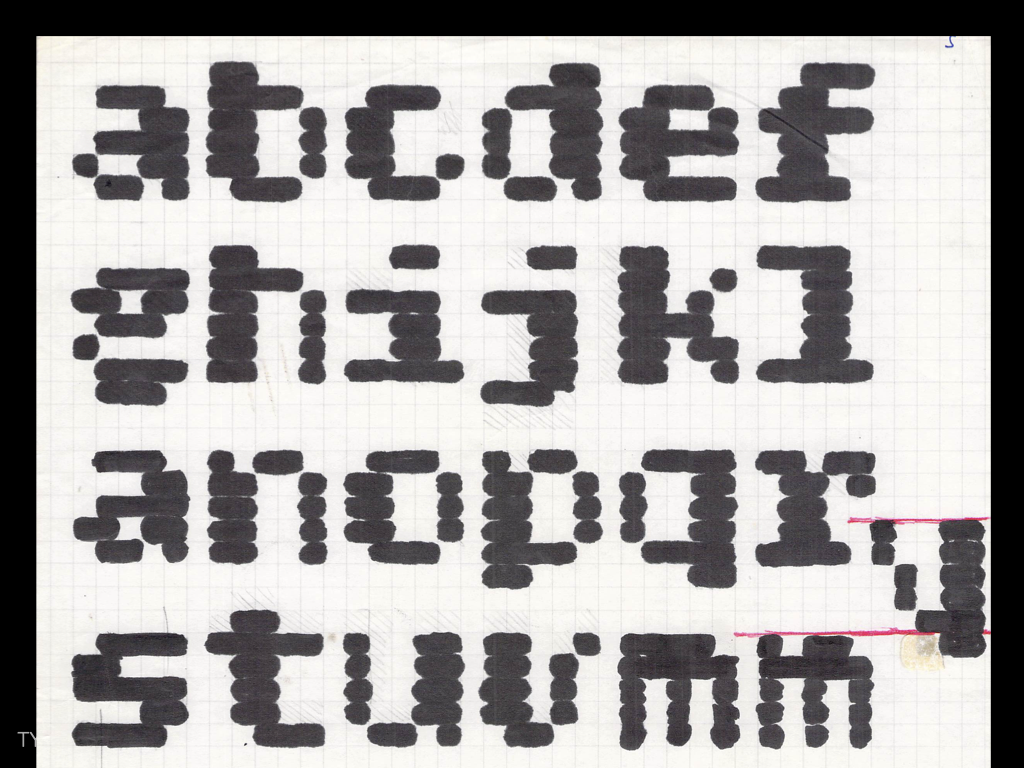 abcdef
ghijkl
anopqr
y
stuvmm
TY